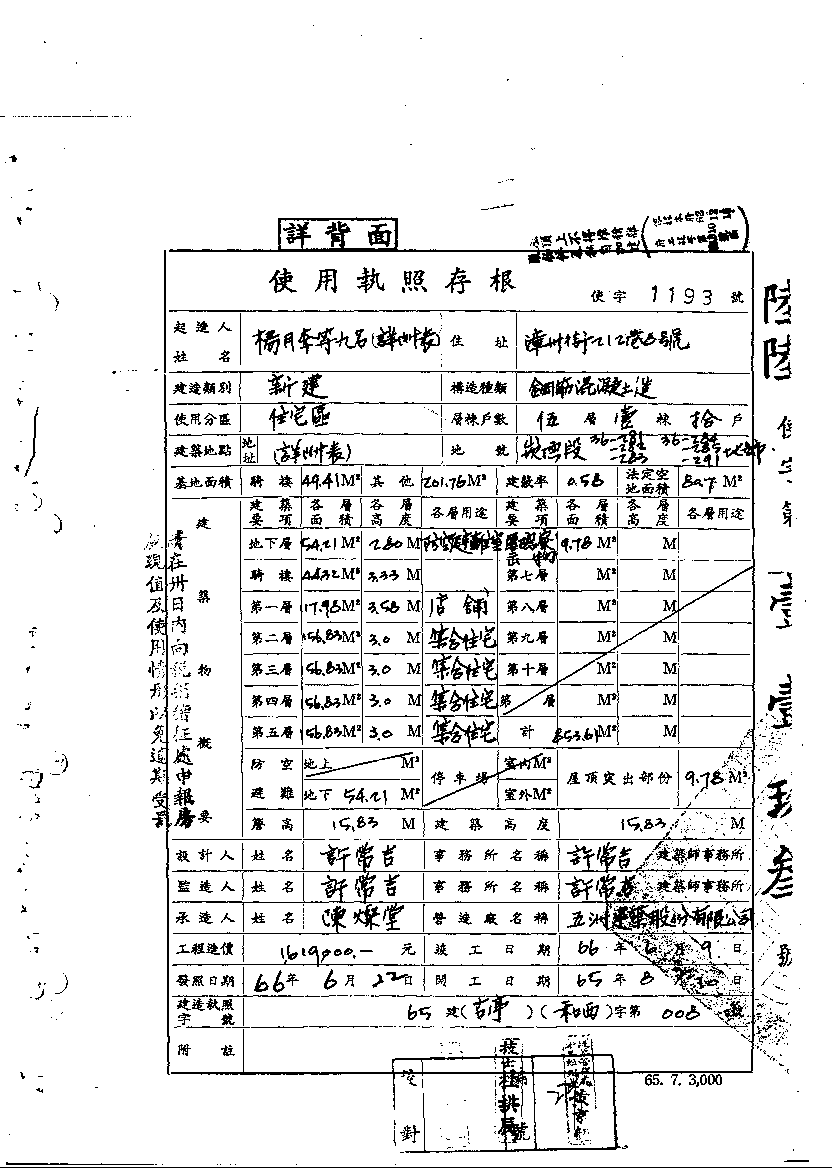 詳背面
使用執照存根
使字 1193 號
起造人姓名 楊月奉等九名(詳附表) 住址 漳州街212巷8號
建造類別 新建 構造種類 鋼筋混凝土造
使用分區 住宅區 層棟戶數 伍層壹棟拾戶
建築地點 地址 (詳附表) 地號 崁頂段
基地面積 騎樓 49.41M² 其他 201.76M² 建蔽率 0.58 法定空地面積 M²
建築物概要
建築要項 各層面積 各層高度 各層用途 建築要項 各層面積 各層高度 各層用途
地下層 54.21M² 2.80M 防空避難室 突出物 9.78M² M
騎樓 44.32M² 3.33M 第七層 M² M
第一層 117.98M² 3.58M 店舖 第八層 M² M
第二層 156.83M² 3.0M 集合住宅 第九層 M² M
第三層 156.83M² 3.0M 集合住宅 第十層 M² M
第四層 156.83M² 3.0M 集合住宅 第 層 M² M
第五層 156.83M² 3.0M 集合住宅 計 853.61M² M
防空避難 地上 M² 地下 54.21M² 停車場 室內M² 室外M² 屋頂突出部份 9.78M²
簷高 15.83M 建築高度 15.83M
設計人 姓名 許常吉 事務所名稱 許常吉 建築師事務所
監造人 姓名 許常吉 事務所名稱 許常吉 建築師事務所
承造人 姓名 陳燦堂 營造廠名稱 五洲建築股份有限公司
工程造價 1619000.-元 竣工日期 66年6月9日
發照日期 66年6月22日 開工日期 65年8月 日
建造執照字號 65建(吉亭)(和西)字第008號
附註
65. 7. 3,000
校對
請在卅日內向稅捐稽征處申報房
屋現值及使用情形以免逾期受罰
陸陸使字第壹壹玖叁號